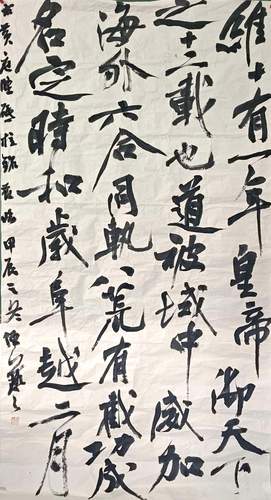 維十有一年皇帝御天下
之十二載也道被域中威加
海外六合同軌八荒有截功成
名定時和歲阜越二月
黃庭堅 甲辰之